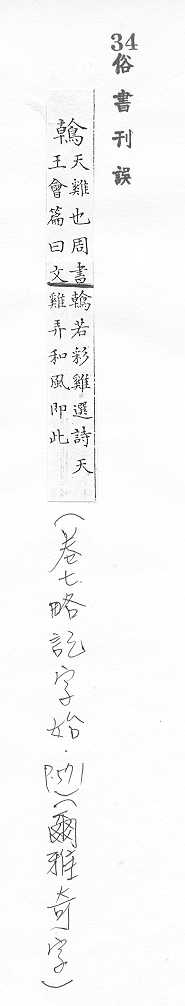 34
俗書刊誤
鶾
天雞也周書
王會篇曰文
鶾若彩雞選詩天
雞弄和風即此
(卷七略記字始．P.571)(爾雅奇字)